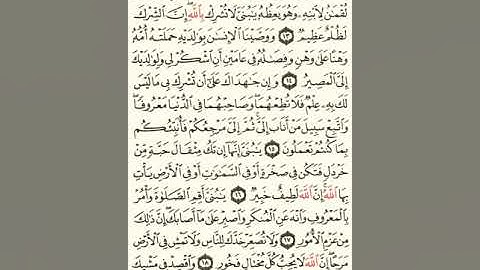 لُقْمَٰنُ لِٱبْنِهِۦ وَهُوَ يَعِظُهُۥ يَٰبُنَىَّ لَا تُشْرِكْ بِٱللَّهِ ۖ إِنَّ ٱلشِّرْكَ
لَظُلْمٌ عَظِيمٌ ١٣ وَوَصَّيْنَا ٱلْإِنسَٰنَ بِوَٰلِدَيْهِ حَمَلَتْهُ أُمُّهُۥ
وَهْنًا عَلَىٰ وَهْنٍ وَفِصَٰلُهُۥ فِى عَامَيْنِ أَنِ ٱشْكُرْ لِى وَلِوَٰلِدَيْكَ
إِلَىَّ ٱلْمَصِيرُ ١٤ وَإِن جَٰهَدَاكَ عَلَىٰٓ أَن تُشْرِكَ بِى مَا لَيْسَ
لَكَ بِهِۦ عِلْمٌ فَلَا تُطِعْهُمَا ۖ وَصَاحِبْهُمَا فِى ٱلدُّنْيَا مَعْرُوفًا ۖ
وَٱتَّبِعْ سَبِيلَ مَنْ أَنَابَ إِلَىَّ ۚ ثُمَّ إِلَىَّ مَرْجِعُكُمْ فَأُنَبِّئُكُم
بِمَا كُنتُمْ تَعْمَلُونَ ١٥ يَٰبُنَىَّ إِنَّهَآ إِن تَكُ مِثْقَالَ حَبَّةٍ مِّنْ
خَرْدَلٍ فَتَكُن فِى صَخْرَةٍ أَوْ فِى ٱلسَّمَٰوَٰتِ أَوْ فِى ٱلْأَرْضِ يَأْتِ
بِهَا ٱللَّهُ ۚ إِنَّ ٱللَّهَ لَطِيفٌ خَبِيرٌ ١٦ يَٰبُنَىَّ أَقِمِ ٱلصَّلَوٰةَ وَأْمُرْ
بِٱلْمَعْرُوفِ وَٱنْهَ عَنِ ٱلْمُنكَرِ وَٱصْبِرْ عَلَىٰ مَآ أَصَابَكَ ۖ إِنَّ ذَٰلِكَ
مِنْ عَزْمِ ٱلْأُمُورِ ١٧ وَلَا تُصَعِّرْ خَدَّكَ لِلنَّاسِ وَلَا تَمْشِ فِى ٱلْأَرْضِ
مَرَحًا ۖ إِنَّ ٱللَّهَ لَا يُحِبُّ كُلَّ مُخْتَالٍ فَخُورٍ ١٨ وَٱقْصِدْ فِى مَشْيِكَ